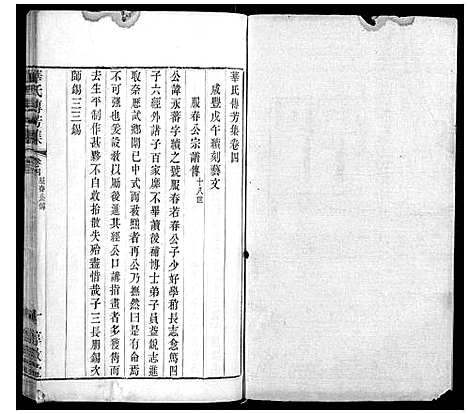 華氏傳芳集卷四
咸豐戊午續刻藝文
服春公宗譜傳十八世
公諱永蕃字續之服春若春公子少好學稍長志愈篤四
子六經外諸子百家靡不畢讀後補博士弟子員益銳志進
取奈歷試鄉闈已中式而被黜者再公乃撫然曰是有命焉
不可強也爰設教以屬後進其經公口講指畫者多獲雋而
去生平制作甚夥不自收拾散失殆盡惜哉子三長朋錫次
師錫三三錫
華氏傳芳集
卷四
服春公傳
一